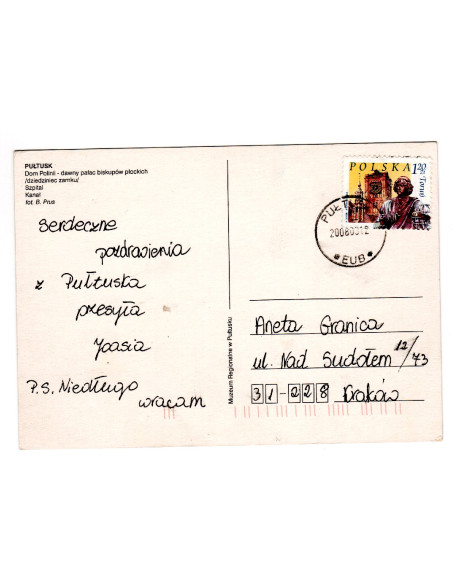 PUŁTUSK
Dom Polinii - dawny pałac biskupów płockich
/dziedziniec zamku/
Szpital
Kanał
fot. B. Prus
Serdeczne
pozdrowienia
z Pułtuska
przesyła
Joasia
P.S. Niedługo
wracam
Muzeum Regionalne w Pułtusku
POLSKA 120
Toruń
PUŁT
20080312
*EUB*
Aneta Granica
ul. Nad Sudołem 12/73
31-228 Kraków